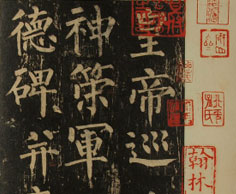 皇帝巡
神策軍
德碑并
翰林